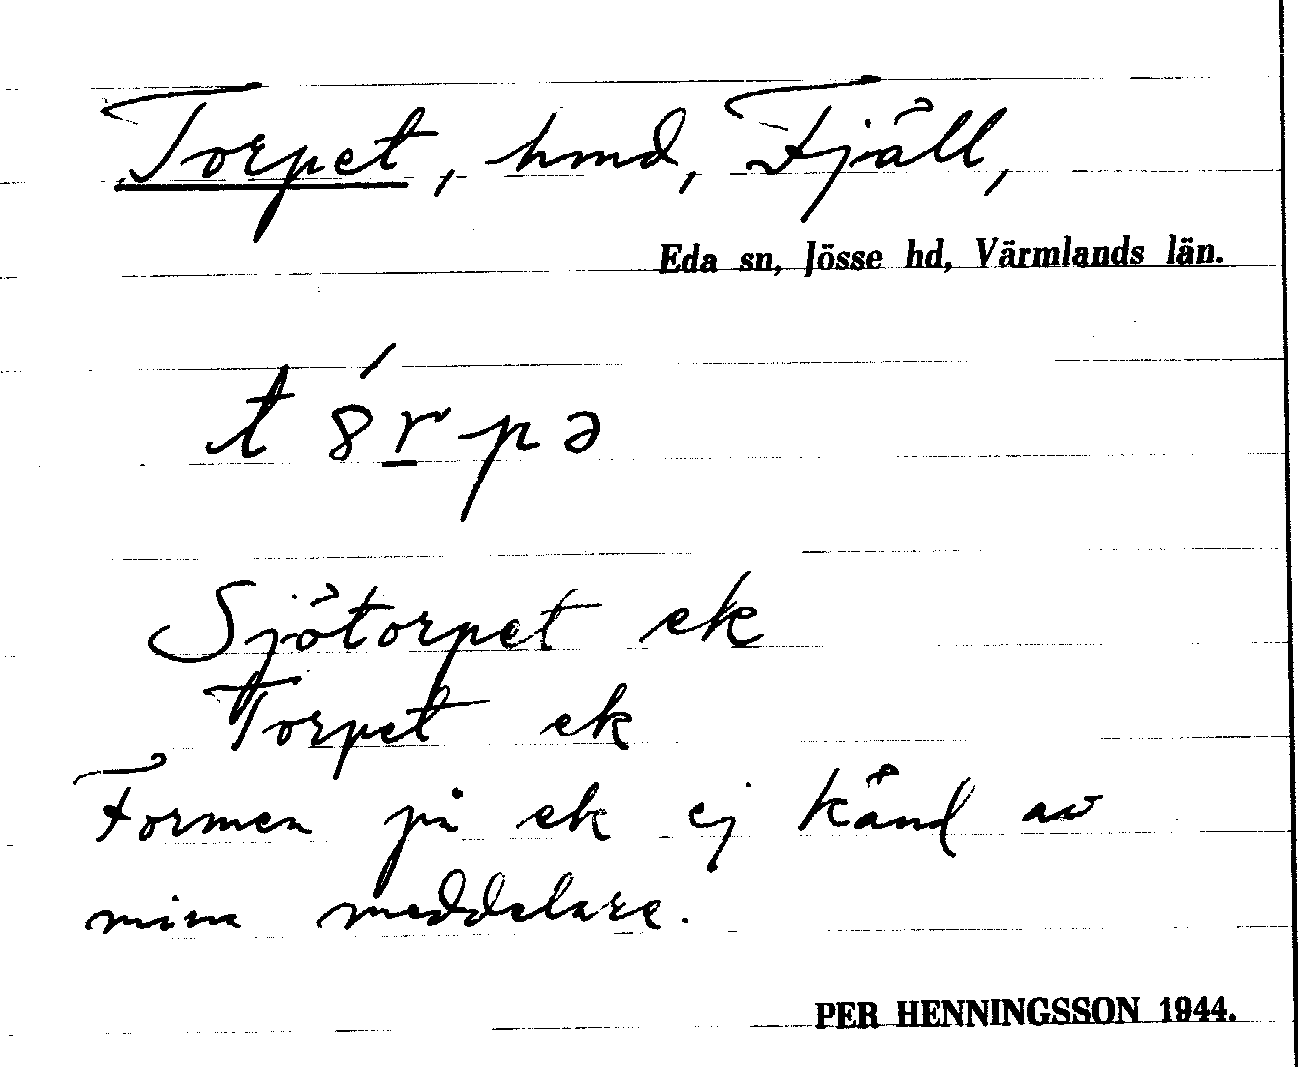 Torpet, hmd, Fjäll,
Eda sn, Jösse hd, Värmlands län.
t8́r̲pə
Sjötorpet ek
Torpet ek
Formen på ek ej känd av
mina meddelare.
PER HENNINGSSON 1944.